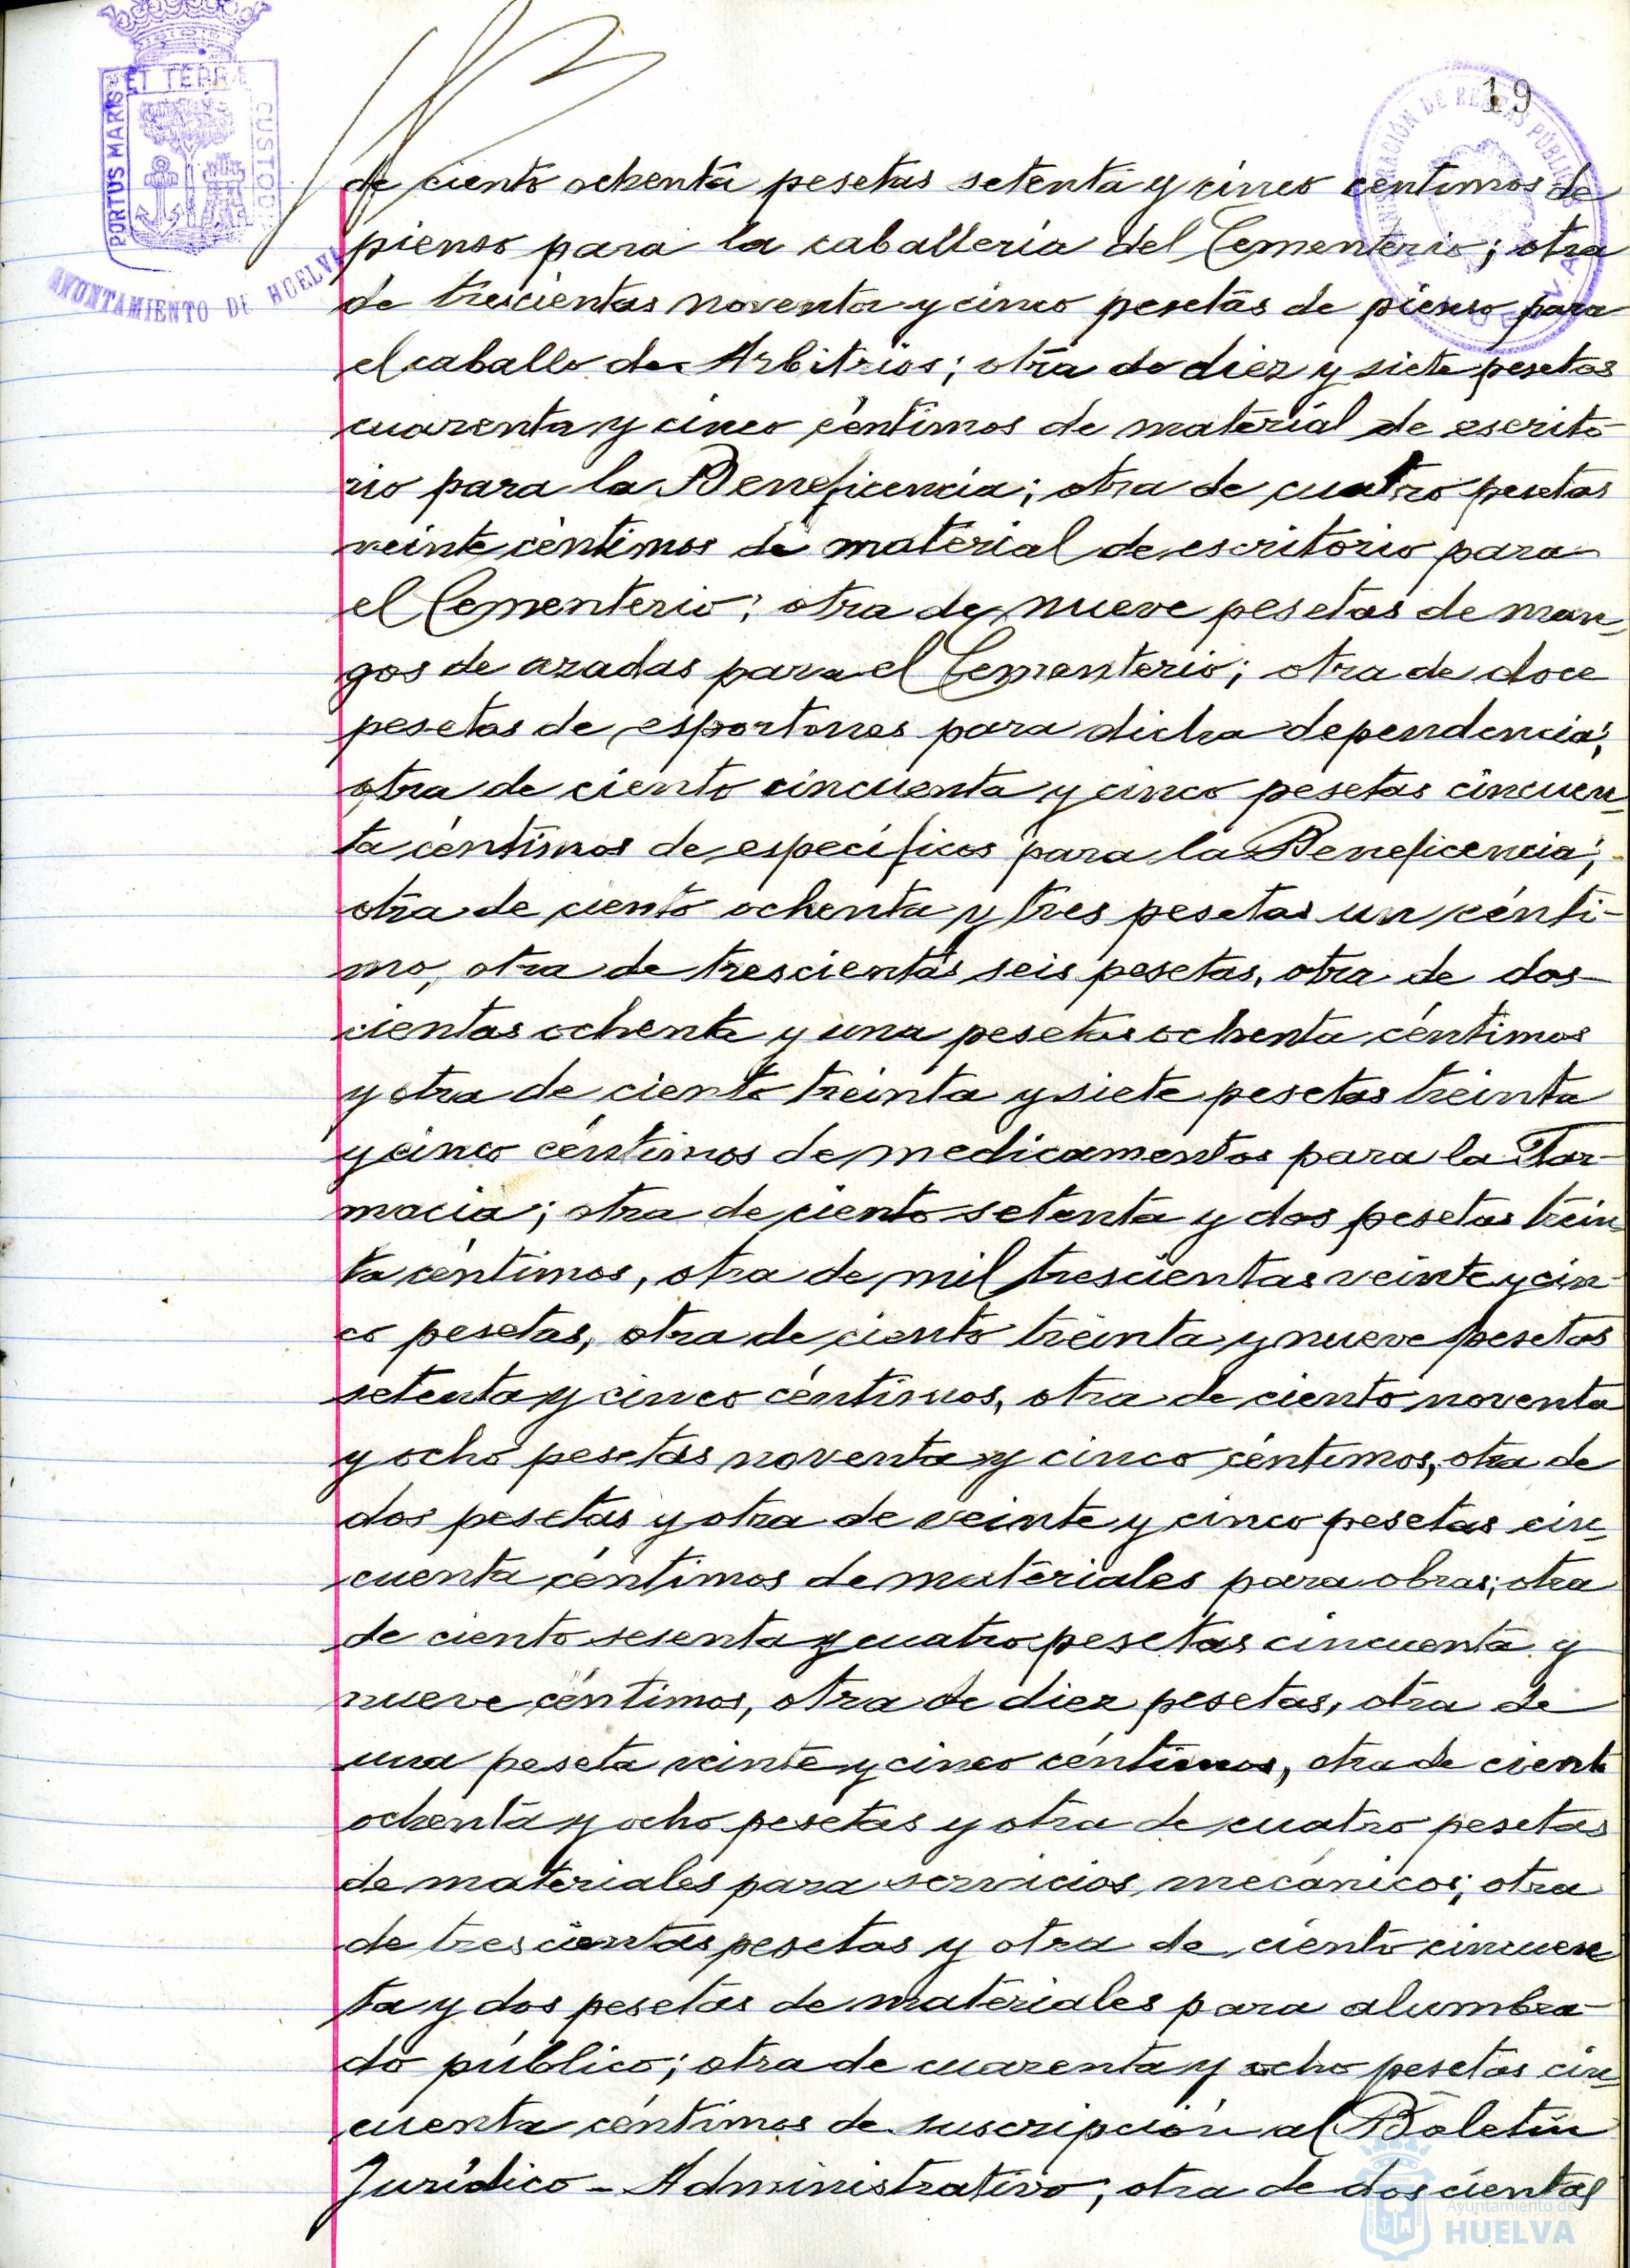 PORTUS MARIS ET TERRÆ CUSTODIA
AYUNTAMIENTO DE HUELVA
19
de ciento ochenta pesetas setenta y cinco centimos de
pienso para la caballeria del Cementerio; otra
de trescientas noventa y cinco pesetas de pienso para
el caballo de Arbitrios; otra de diez y siete pesetas
cuarenta y cinco céntimos de material de escrito
rio para la Beneficencia; otra de cuatro pesetas
veinte céntimos de material de escritorio para
el Cementerio; otra de nueve pesetas de man-
gos de azadas para el Cementerio; otra de doce
pesetas de esportones para dicha dependencia;
otra de ciento cincuenta y cinco pesetas cincuen-
ta céntimos de específicos para la Beneficencia;
otra de ciento ochenta y tres pesetas un cénti-
mo, otra de trescientas seis pesetas, otra de dos-
cientas ochenta y una pesetas ochenta céntimos
y otra de ciento treinta y siete pesetas treinta
y cinco céntimos de medicamentos para la Far-
macia; otra de ciento setenta y dos pesetas trein-
ta céntimos, otra de mil trescientas veinte y cin-
co pesetas, otra de ciento treinta y nueve pesetas
setenta y cinco céntimos, otra de ciento noventa
y ocho pesetas noventa y cinco céntimos, otra de
dos pesetas y otra de veinte y cinco pesetas cin-
cuenta céntimos de materiales para obras; otra
de ciento sesenta y cuatro pesetas cincuenta y
nueve céntimos, otra de diez pesetas, otra de
una peseta veinte y cinco céntimos, otra de ciento
ochenta y ocho pesetas y otra de cuatro pesetas
de materiales para servicios mecánicos; otra
de trescientas pesetas y otra de ciento cincuen
ta y dos pesetas de materiales para alumbra-
do público; otra de cuarenta y ocho pesetas cin-
cuenta céntimos de suscripción al Boletín
Jurídico-Administrativo; otra de doscientas
Ayuntamiento de
HUELVA